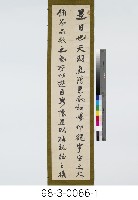 是日也天朗氣清惠風和暢仰觀宇宙之大
俯察品類之盛所以遊目騁懷足以極視聽之娛
98-3-0066-1